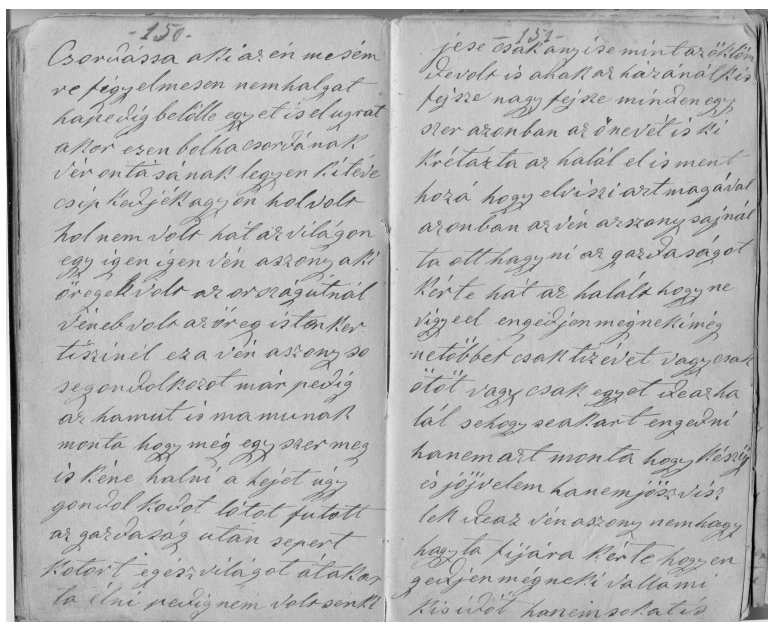 -150-
Csordássa aki az én mesém
re figyelmesen nemhalgat
hapedig belölle egyet is elugrat
akor ezen bolha csordának
vér ontásának legyen kitéve
csipkedjék agyon hol volt
hol nem volt hát az világon
egy igen igen vén aszony aki
öregeb volt az országútnál
véneb volt az öreg isten ker
tiszinél ez a vén aszony so
se gondolkozot már pedig
az hamut is mamunak
monta hogy még egyszer meg
is kéne halni a hejet úgy
gondolkodot lótot futott
az gazdaság után sepert
kotort egész világot atakar
ta élni pedig nem volt senki
-151-
jése csak anyise mint az öklöm
de volt is ahak az házánál kis
fejsze nagy fejsze minden egy
szer azonban az önevét is ki
krétázta az halál el is ment
hozá hogy elviszi azt magával
azonban az vén aszony sajnál
ta ott hagyni az gazdaságot
kérte hát az halált hogy ne
vigye el engedjen még neki még
ne többet csak tiz evet vagy csak
ötöt vagy csak egyet de az ha
lál sehogy se akart engedni
hanem azt monta hogy készűj
és jöjj velem hanem jösz visz
lek de az vén aszony nem hagy
hagyta fijára kérte hogy en
gedjen még neki vallami
kis idöt hanem sokat is